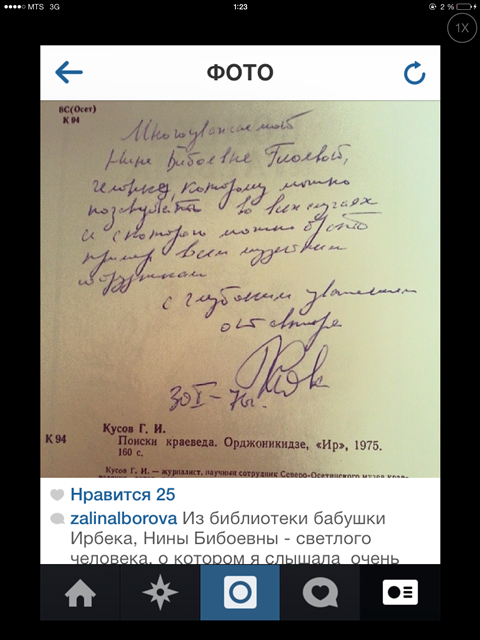 MTS 3G 1:23 2 %
1X
ФОТО
ВС(Осет)
К 94
Многоуважаемой
Нине Бибоевне Гиоевой,
человеку, которому можно
позавидовать во всех случаях
и с которого можно брать
пример всем музейным
с глубоким уважением
от автора
30 I – 76 г.
К 94
Кусов Г. И.
Поиски краеведа. Орджоникидзе, «Ир», 1975.
160 с.
Кусов Г. И. — журналист, научный сотрудник Северо-Осетинского музея крае-
Нравится 25
zalinalborova Из библиотеки бабушки
Ирбека, Нины Бибоевны - светлого
человека, о котором я слышала очень